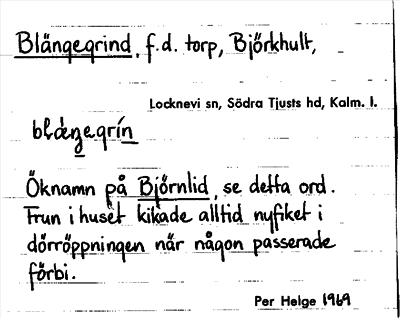 Blängegrind, f.d. torp, Björkhult,
Locknevi sn, Södra Tjusts hd, Kalm. l.
Öknamn på Björnlid, se detta ord.
Frun i huset kikade alltid nyfiket i
dörröppningen när någon passerade
förbi.
Per Helge 1969